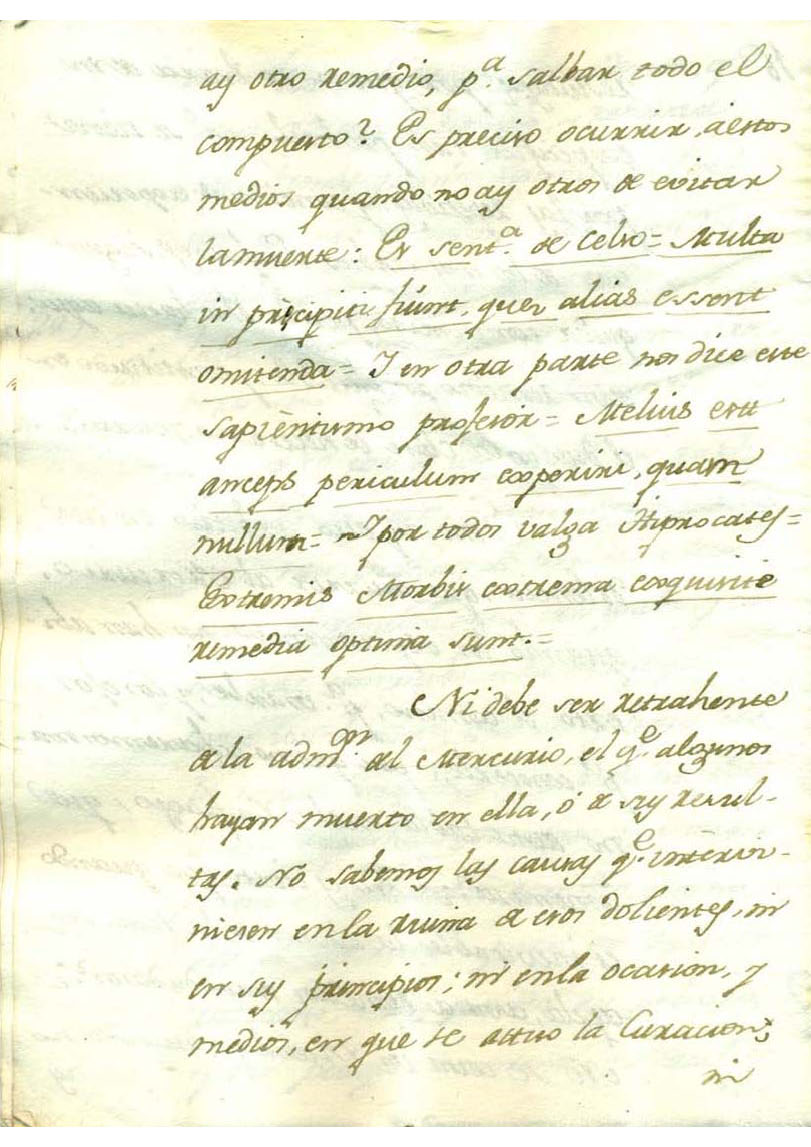 ay otro remedio, p.ª salbar todo el
compuesto? Es preciso ocurrir, aestos
medios quando no ay otros de evitar
lamuerte: Es sent.ª de Celso= Multa
in precipiti fiunt, quer alias essent
omitenda= I en otra parte nos dice este
sapientismo profesor= Melius estt
anceps periculum experiri, quam
nullum= I por todos valga Hiprocates=
Extremis Morbis extrema exquisite
remedia optima sunt.=
Ni debe ser retrahente
de la adm.on del Mercurio, el q.e algunos
hayan muerto en ella, ó de sus resul-
tas. No sabemos las causas q.e intervi-
niesen en la ruina de esos dolientes, ni
en sus principios; ni enla ocasion, y
medios, en que se attuo la Curacion;
ni